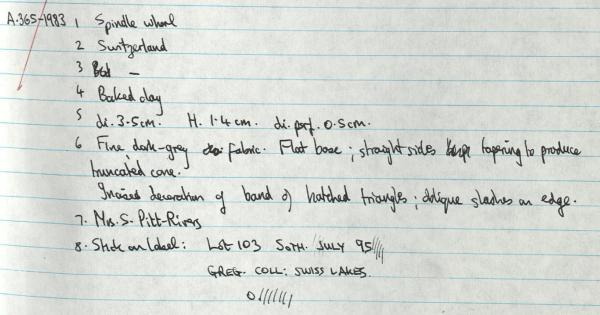 A.365-1983 1 Spindle whorl
2 Switzerland
3 –
4 Baked clay
5 di. 3.5cm. H. 1.4cm. di. perf. 0.5cm.
6 Fine dark-grey fabric. Flat base; straight sides tapering to produce
truncated cone.
Incised decoration of band of hatched triangles; oblique slashes on edge.
7. Mrs. S. Pitt-Rivers
8. Stick on label: Lot 103 SOTH. JULY 95
GREG. COLL: SWISS LAKES.